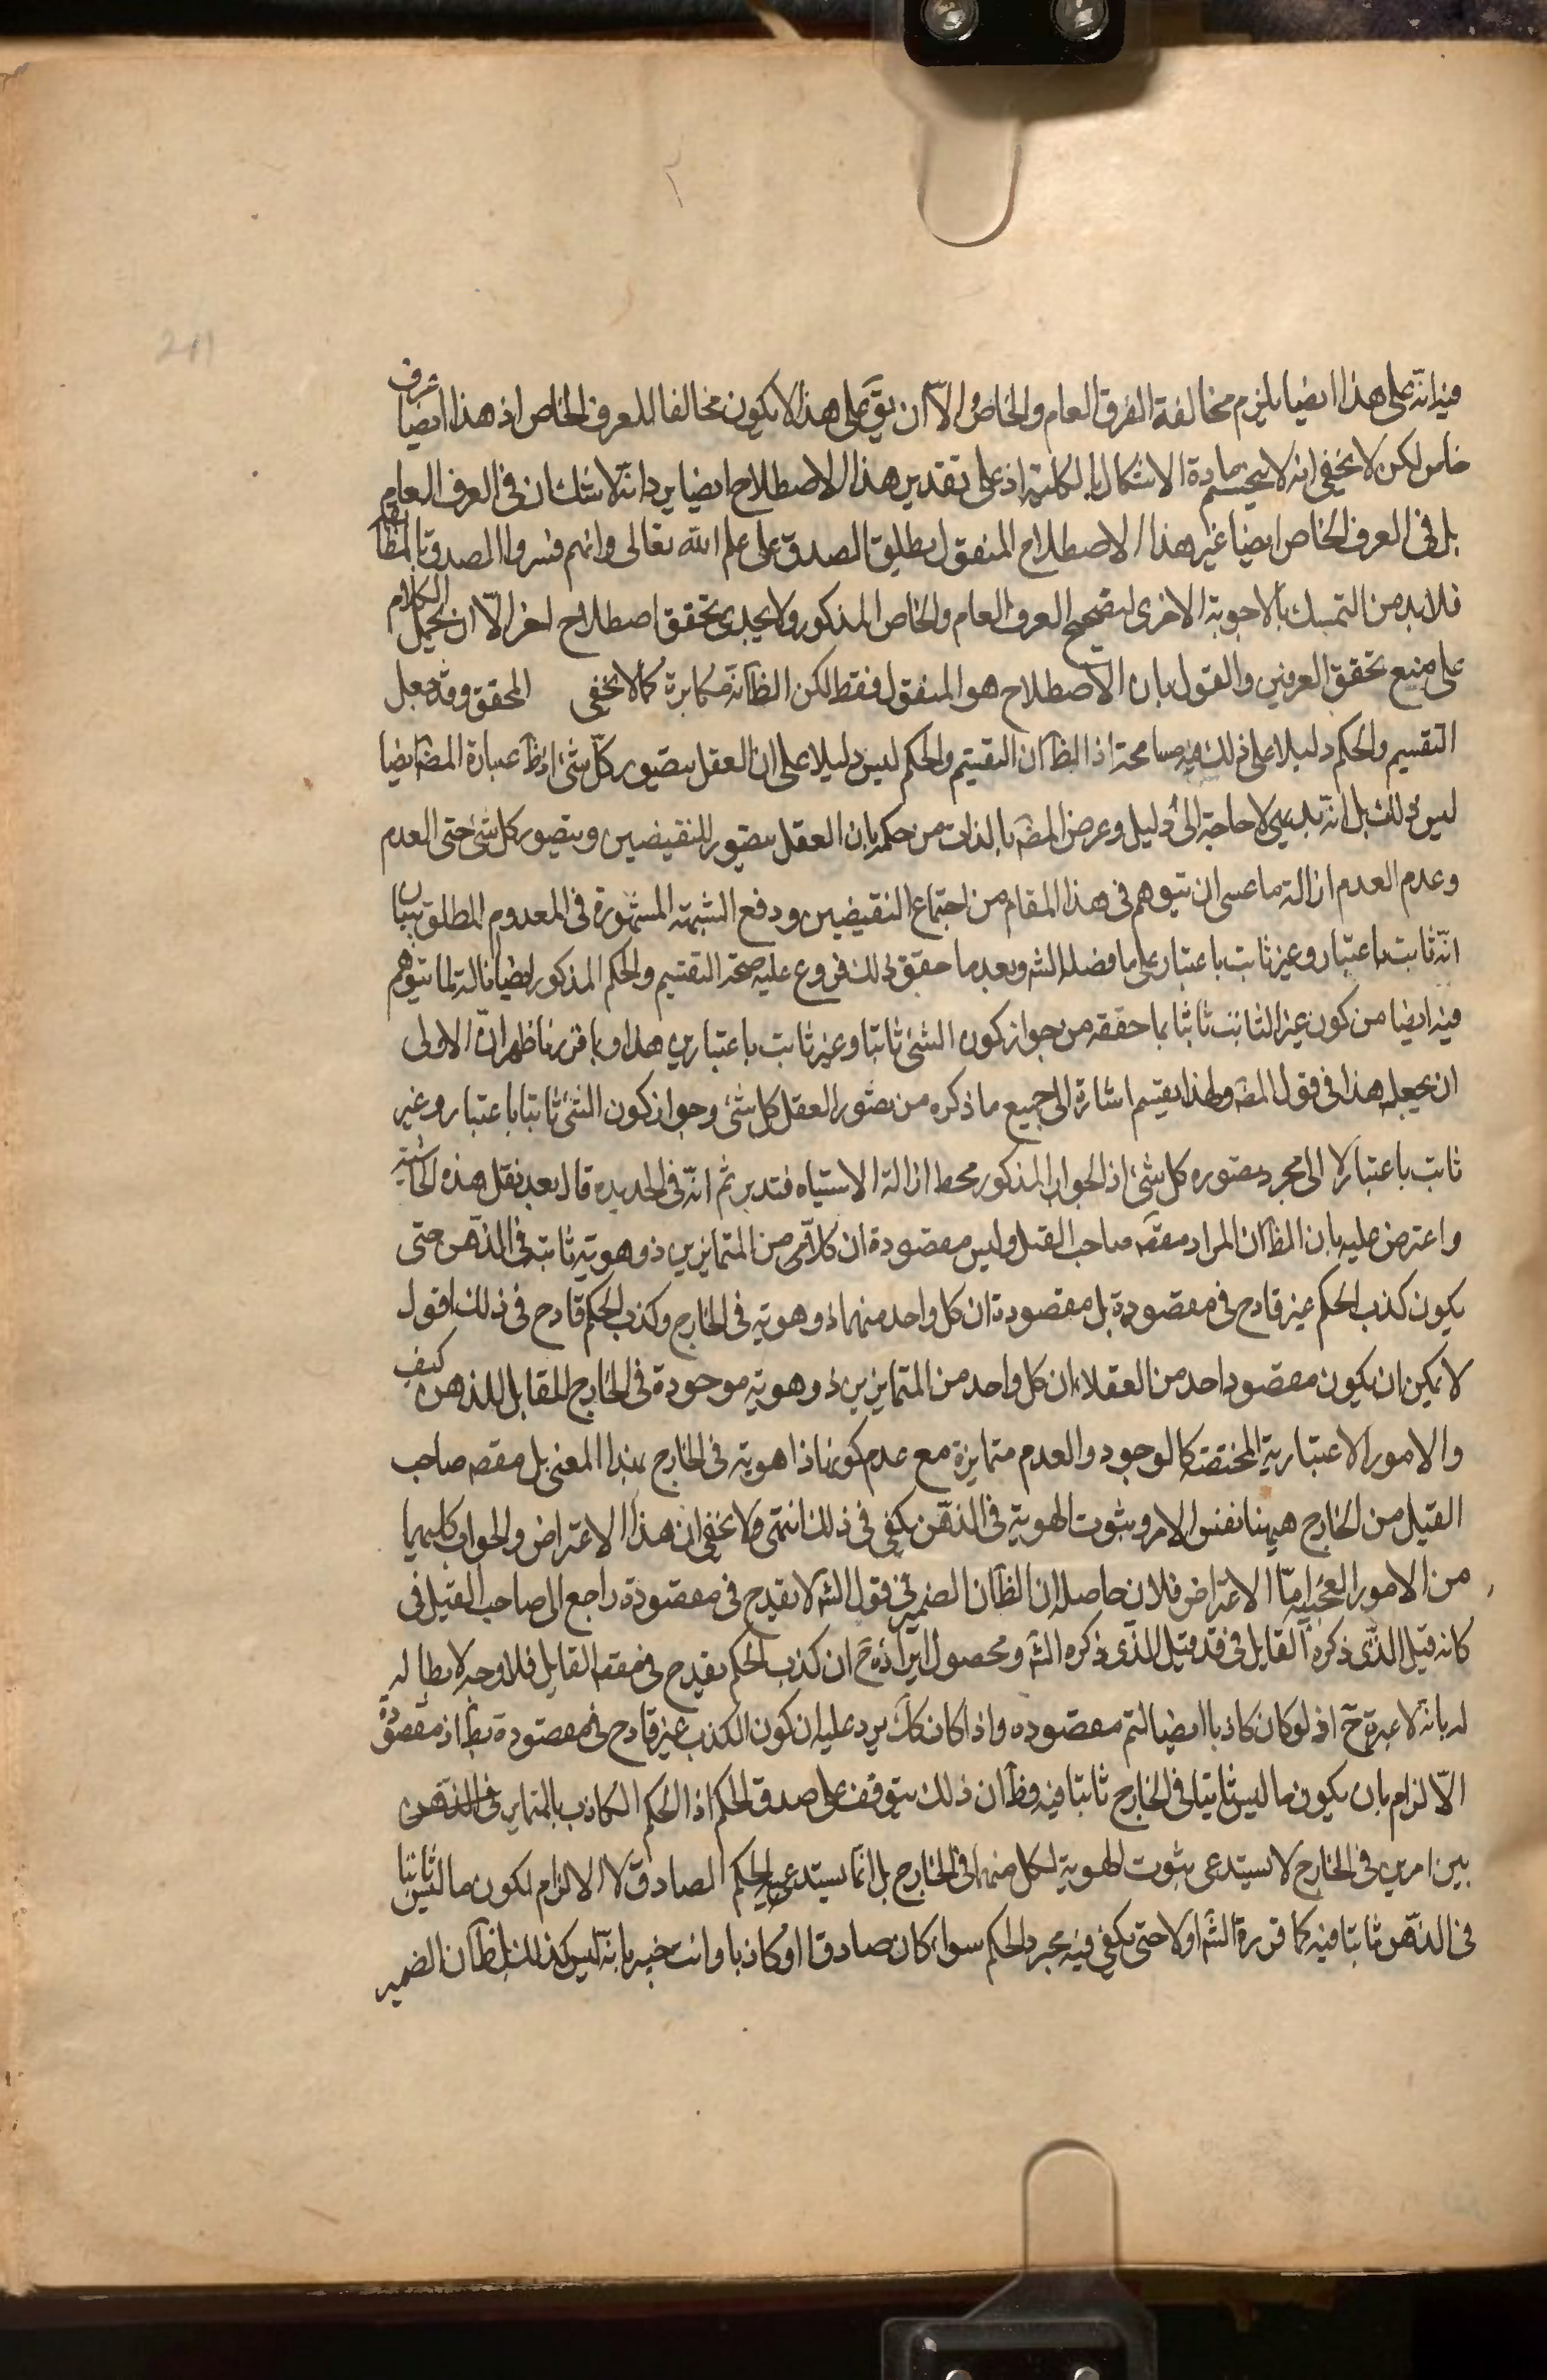 فيه انه على هذا ايضا يلزم مخالفة الفرق العام والخاص الا ان يق على هذا لا يكون مخالفا للعرف الخاص اذ هذا ايضا عرف
خاص لكن لا يخفى انه لا ينحسم مادة الاشكال بالكلية اذ على تقدير هذا الاصطلاح ايضا يرد انه لا شك ان فى العرف العام
بل فى العرف الخاص ايضا غير هذا الاصطلاح المنقول يطلق الصدق على علم الله تعالى وانهم فسروا الصدق بالمطابقة
فلا بد من التمسك بالاجوبة الاخرى لتصحيح العرف العام والخاص المذكور ولا يجدى تحقق اصطلاح اخر الا ان يحمل الكلام
على منع تحقق العرفين والقول بان الاصطلاح هو المنقول فقط لكن الظ انه مكابرة كما لا يخفى المحقق وقد جعل
التقسيم والحكم دليلا على ذلك فيه مسامحة اذ الظ ان التقسيم والحكم ليس دليلا على ان العقل يتصور كل شئ اذ ظ عبارة المص ايضا
ليس ذلك بل انه بديهى لا حاجة الى دليل وغرض المص بالذات من حكمه بان العقل يتصور النقيضين ويتصور كل شئ حتى العدم
وعدم العدم ازالة ما عسى ان يتوهم فى هذا المقام من اجتماع النقيضين ودفع الشبهة المشهورة فى المعدوم المطلق ببيان
انه ثابت باعتبار وغير ثابت باعتبار على ما فصله الش وبعد ما حقق ذلك فروع عليه صحة التقسيم والحكم المذكور ايضا ازالة لما يتوهم
فيه ايضا من كون غير الثابت ثابتا بما حققه من جواز كون الشئ ثابتا وغير ثابت باعتبارين هذا وبما قررنا ظهر ان الاولى
ان يجعل هذا فى قول المص ولهذا يقسم اشارة الى جميع ما ذكره من تصور العقل كل شئ وجواز كون الشئ ثابتا باعتبار وغير
ثابت باعتبار لا الى مجرد تصوره كل شئ اذ الجواز المذكور محط ازالة الاشتباه فتدبر ثم انه فى الجديدة قال بعد نقل هذه الحاشية
واعترض عليه بان الظ ان المراد مقصه صاحب القيل وليس مقصوده ان كلا من المتمايزين ذو هوية ثابتة فى الذهن حتى
يكون كذب الحكم غير قادح فى مقصوده بل مقصوده ان كل واحد منهما ذو هوية فى الخارج وكذب الحكم قادح فى ذلك اقول
لا يمكن ان يكون مقصود احد من العقلاء ان كل واحد من المتمايزين ذو هوية موجودة فى الخارج المقابل للذهن كيف
والامور الاعتبارية المحققة كالوجود والعدم متمايزة مع عدم كونها ذا هوية فى الخارج بهذا المعنى بل مقصه صاحب
القيل من الخارج ههنا نفس الامر وبثوت الهوية فى الذهن يكفى فى ذلك انتهى ولا يخفى ان هذا الاعتراض والجواب كليهما
من الامور العجيبة اما الاعتراض فلان حاصله ان الظ ان الضمير فى قول الش لا يقدح فى مقصوده راجع الى صاحب القيل فى
كانه قيل الذى ذكره القايل فى قد قيل للذى ذكره الش ومحصول ايراده ح ان كذب الحكم يقدح فى مقصه القايل فلا وجه لابطاله
له بانه لا عبرة ح اذ لو كان كاذبا ايضا لتم مقصوده واذا كان كك يرد عليه ان كون الكذب غير قادح فى مقصوده بط اذ مقصوده
الالزام بان يكون ما ليس ثابتا فى الخارج ثابتا فيه وظ ان ذلك يتوقف على صدق الحكم اذ الحكم الكاذب بالتمايز فى الذهن
بين امرين فى الخارج لا يستدعى بثوت الهوية لكل منهما فى الخارج بل انما يستدعيه الحكم الصادق لا الالزام لكون ما ليس ثابتا
فى الذهن ثابتا فيه كما قرره الش اولا حتى يكفى فيه مجرد الحكم سواء كان صادقا او كاذبا وانت خبير بانه ليس كذلك بل الظ ان الضمير